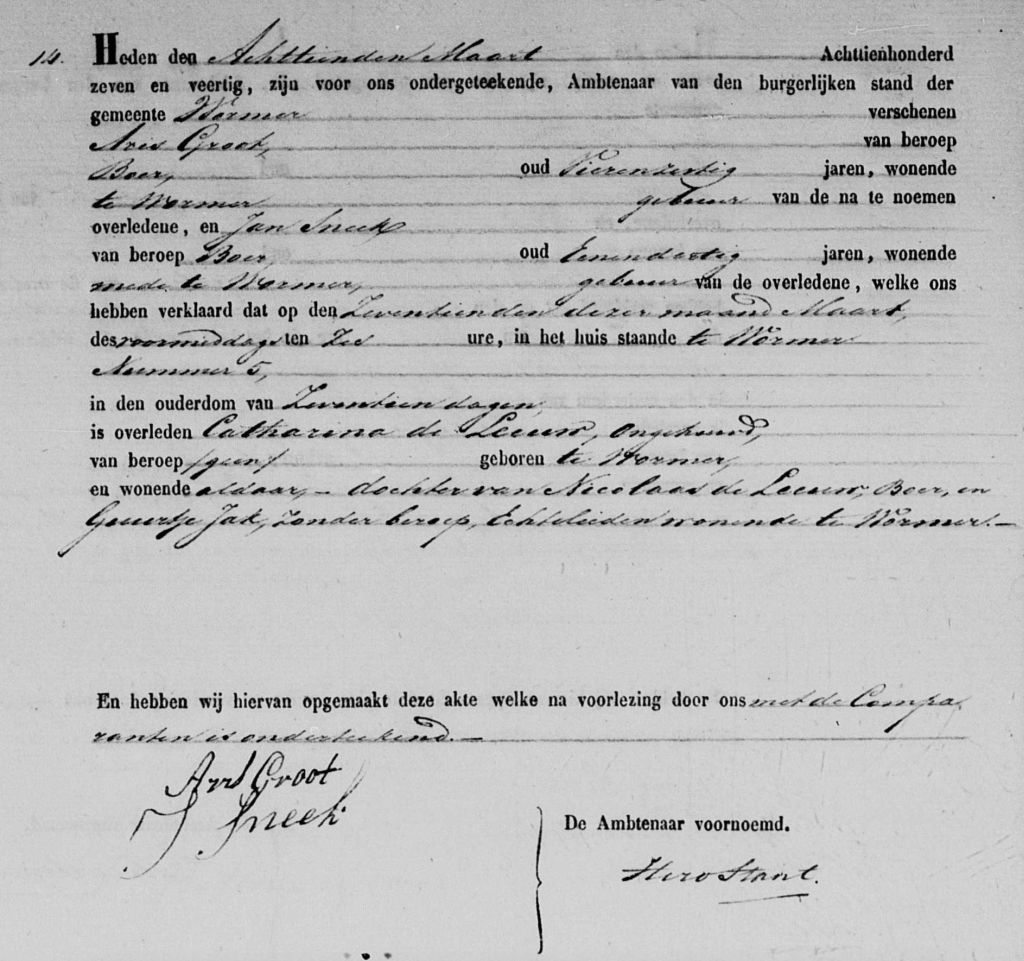 14. Heden den Achttienden Maart Achttienhonderd
zeven en veertig, zijn voor ons ondergeteekende, Ambtenaar van den burgerlijken stand der
gemeente Wormer verschenen
Aris Groot, van beroep
Boer, oud Vierenzestig jaren, wonende
te Wormer gebuur van de na te noemen
overledene, en Jan Sneek
van beroep Boer, oud Eenendertig jaren, wonende
mede te Wormer, gebuur van de overledene, welke ons
hebben verklaard dat op den Zeventienden dezer maand Maart,
des voormiddags ten Zes ure, in het huis staande te Wormer
Nummer 5,
in den ouderdom van Zeventien dagen,
is overleden Catharina de Leeuw, ongehuwd,
van beroep /geen/ geboren te Wormer,
en wonende aldaar, – dochter van Nicolaas de Leeuw, Boer, en
Geuertje Jak, zonder beroep, Echtelieden wonende te Wormer. –
En hebben wij hiervan opgemaakt deze akte welke na voorlezing door ons met de Compa,
ranten is onderteekend. –
Aris Groot
J Sneek
De Ambtenaar voornoemd.